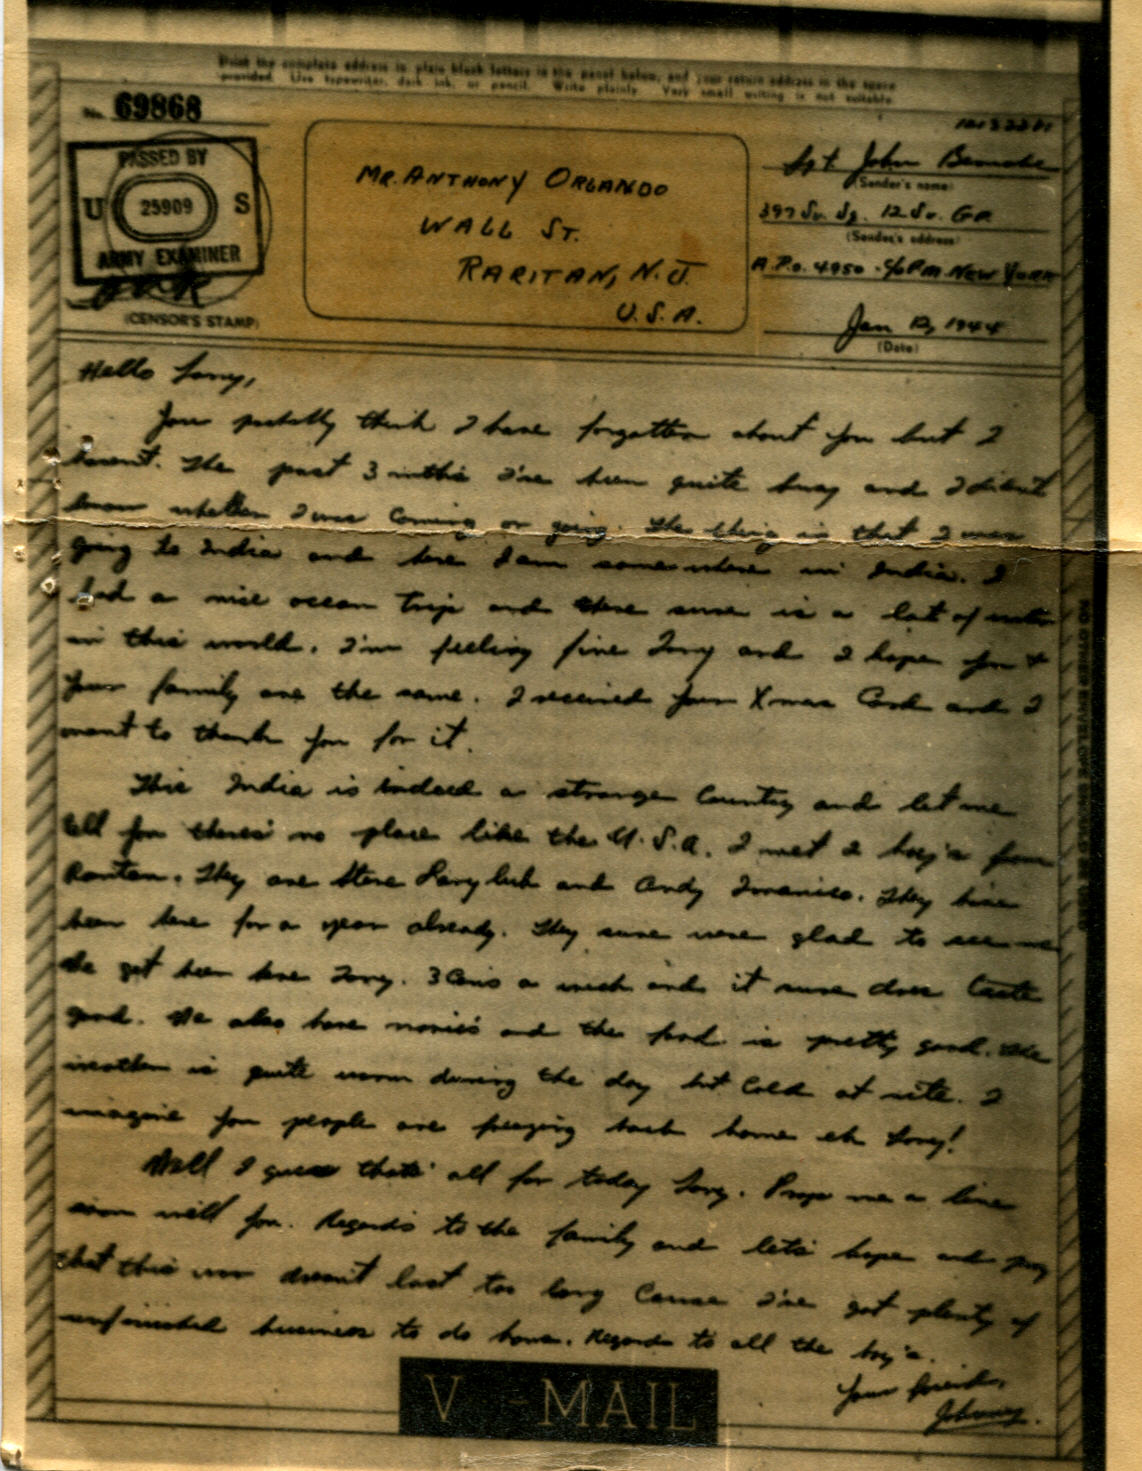 Print the complete address in plain block letters in the panel below, and your return address in the space
provided. Use typewriter, dark ink, or pencil. Write plainly. Very small writing is not suitable.
No. 69868
PASSED BY
U 25909 S
ARMY EXAMINER
(CENSOR'S STAMP)
MR. ANTHONY ORLANDO
WALL ST.
RARITAN, N.J.
U.S.A.
Sgt. John
(Sender's name)
397 Sv. Sq. 12 Sv. GP.
(Sender's address)
A.P.O. 4950 - c/o P.M. NEW YORK
Jan 12, 1944
(Date)
Hello Tony,
You probally think I have forgotten about you but I
havent. The past 3 mths I've been quite busy and I didnt
know whether I was coming or going. The thing is that I was
going to India and here I am somewhere in India. I
had a nice ocean trip and there sure is a lot of water
in this world. I'm feeling fine Tony and I hope you &
your family are the same. I received your Xmas Card and I
want to thank you for it.
This India is indeed a strange Country and let me
tell you theres' no place like the U.S.A. I met 2 boy's from
Raritan. They are Steve and Andy. They have
been here for a year already. They sure were glad to see me
We get beer here Tony. 3 Cans a week and it sure does taste
good. We also have movies and the food is pretty good. The
weather is quite warm during the day but Cold at nite. I
imagine you people are freezing back home eh Tony!
Well I guess thats' all for today Tony. Drop me a line
soon will you. Regards to the family and lets' hope and pray
that this war doesn't last too long Cause I've got plenty of
unfinished business to do home. Regards to all the boy's.
Your friend,
Johnny.
V-MAIL
NO OTHER ENVELOPE SHOULD BE USED